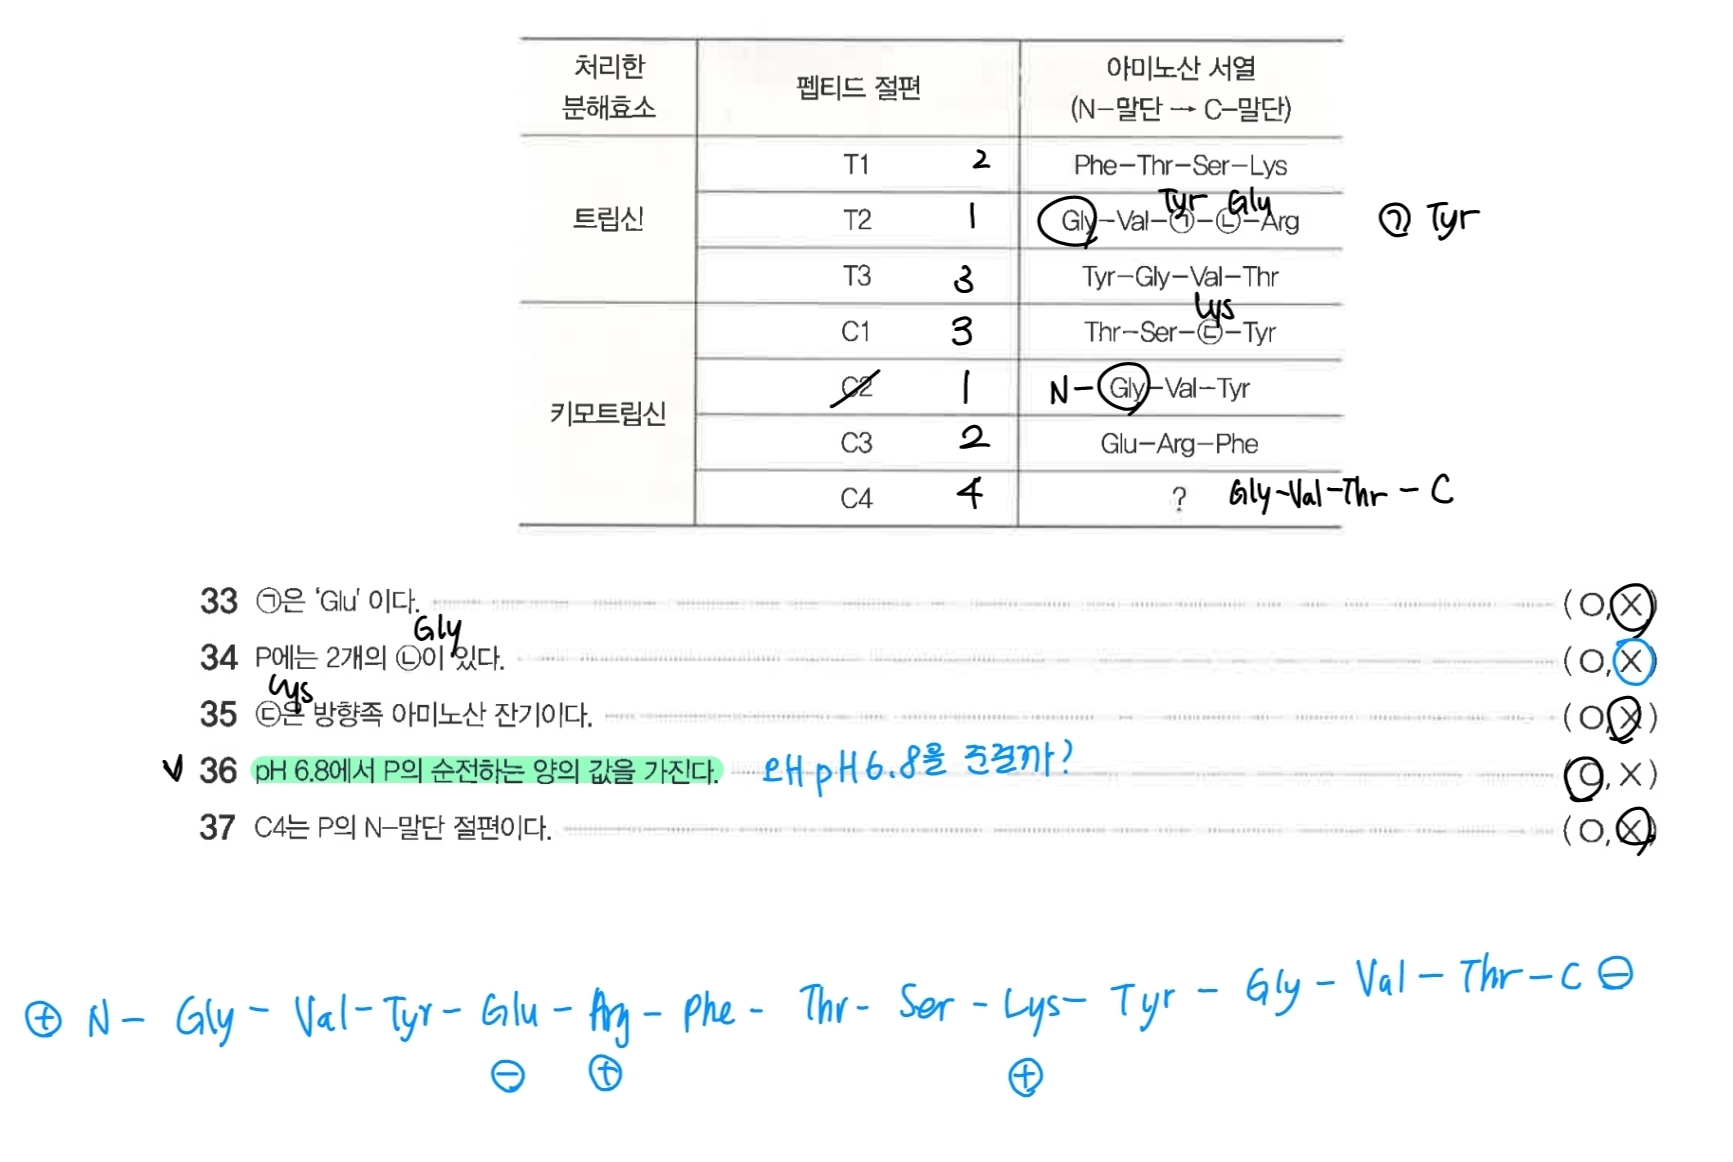 처리한 분해효소 펩티드 절편 아미노산 서열 (N-말단 → C-말단)
T1 2 Phe-Thr-Ser-Lys
Tyr Gly
트립신 T2 1 Gly-Val-㉠-㉡-Arg ㉠ Tyr
T3 3 Tyr-Gly-Val-Thr
Lys
C1 3 Thr-Ser-㉢-Tyr
C2 1 N- Gly-Val-Tyr
키모트립신
C3 2 Glu-Arg-Phe
C4 4 ? Gly-Val-Thr - C
33 ㉠은 ‘Glu’ 이다. (O, X)
Gly
34 P에는 2개의 ㉡이 있다. (O, X)
Lys
35 ㉢은 방향족 아미노산 잔기이다. (O, X)
V 36 pH 6.8에서 P의 순전하는 양의 값을 가진다. 왜 pH 6.8을 준걸까? (O, X)
37 C4는 P의 N-말단 절편이다. (O, X)
⊕ N - Gly - Val - Tyr - Glu - Arg - Phe - Thr - Ser - Lys - Tyr - Gly - Val - Thr - C ⊖
⊖ ⊕ ⊕